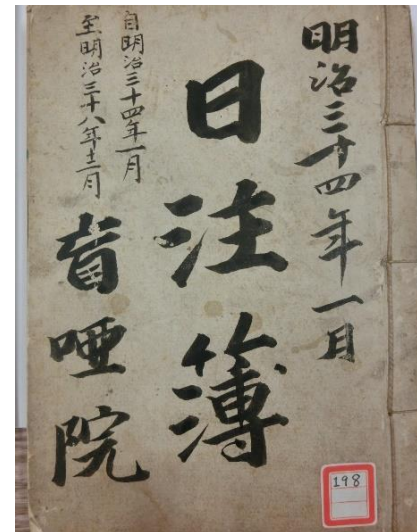 明治三十四年一月
日注簿
自明治三十四年一月
至明治三十八年十二月
盲唖院
198